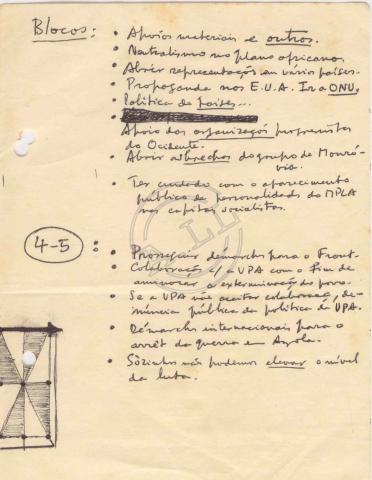 Blocos:
• Apoios materiais e outros.
• Neutralismo no plano africano.
• Abrir representaçoẽs em vários países.
• Propaganda nos E.U.A. Ir a ONU.
• Política de países...
• Apoio das organizaçoẽs progressistas
do Ocidente.
• Abrir as brechas do grupo de Monró-
via.
• Ter cuidado com o aparecimento
público de personalidades do MPLA
nas capitais socialistas.
4-5:
• Prosseguir démarches para o Front.
• Colaboração c/ a UPA com o fim de
a exterminação do povo.
• Se a UPA não aceitar colaboração, de-
núncia pública da política da UPA.
• Démarches internacionais para o
arrêt da guerra em Angola.
• Sòzinhos não podemos elevar o nível
da luta.